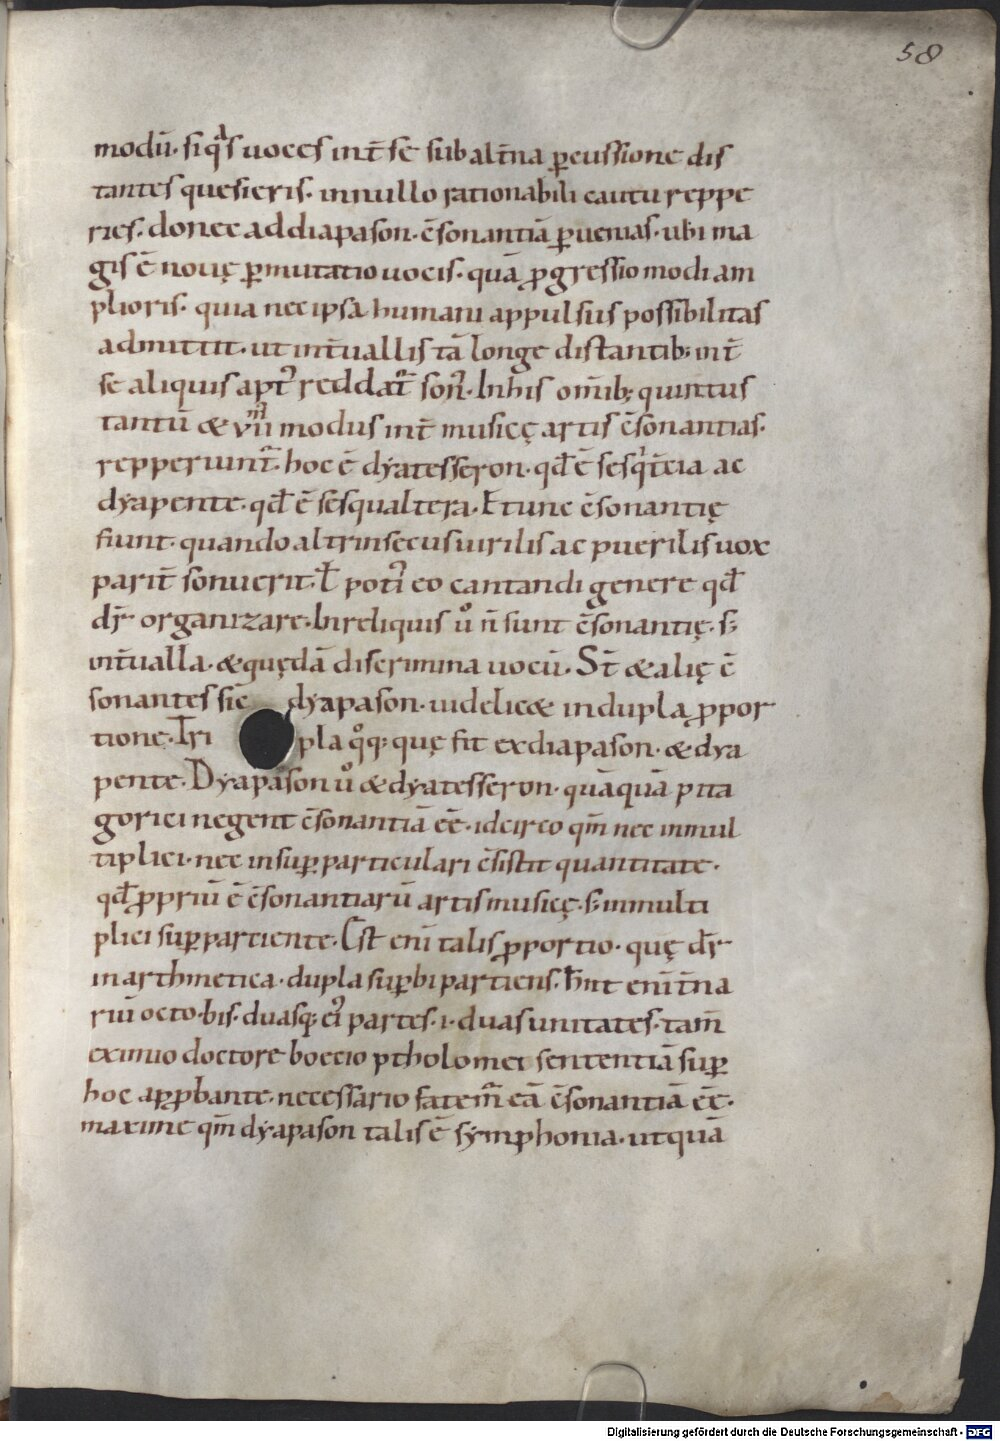 58
modū· siq̄s uoces int̄ se sub alt̄na ꝑcussione dis
tantes quesieris· innullo rationabili cantu reppe
ries· donec ad diapason· c̄sonantiā ꝑuenias· ubi ma
gis ē nouę ꝑmutatio uocis· quā ꝓgressio modi am
plioris· quia nec ipsa humani appulsus possibilitas
admittit· ut int̄uallis tā longe distantib; int̄
se aliquis apt᷒ reddat᷒ son᷒· In his omīb; quintus
tantū & vıı modus int̄ musicę artis c̄sonantias·
repperiunt᷒· hoc ē dyatesseron· qđ ē sesqt̄cia ac
dyapente· qđ ē sesqualtera· Et tunc c̄sonantię
fiunt· quando altrinsecus uirilis ac puerilis uox
parit̄ sonuerit· ł poti᷒ eo cantandi genere qđ
dr̄ organizare· In reliquis ůo n̄ sunt c̄sonantię· s;
int̄ualla· & quędā discrimina uocū· St̄ & alię c̄
sonantes sic̄ dyapason· uidelic& in dupla ꝓpor
tione· Tri pla qͦq; quę fit ex diapason· & dya
pente· Dyapason ůo & dyatesseron· quāquā pita
gorici negent c̄sonantiā eē· idcirco qm̄ nec in mul
tiplici· nec in suꝑparticulari c̄sistit quantitate·
qđ ꝓpriū ē c̄sonantiarū artis musicę· s; in multi
plici suꝑpartiente· Est enī talis ꝓportio· quę dr̄
in arthmetica· dupla suꝑbipartiens· hn̄t enī t̄na
riū octo· bis· duasq; ei᷒ partes· i· duas unitates· tam̄
eximio doctore boecio ptholomei sententiā suꝑ
hoc apꝓbante· necessario fatem᷒ eā c̄sonantiā eē·
maxime qm̄ dyapason talis ē symphonia· ut quā
Digitalisierung gefördert durch die Deutsche Forschungsgemeinschaft - DFG